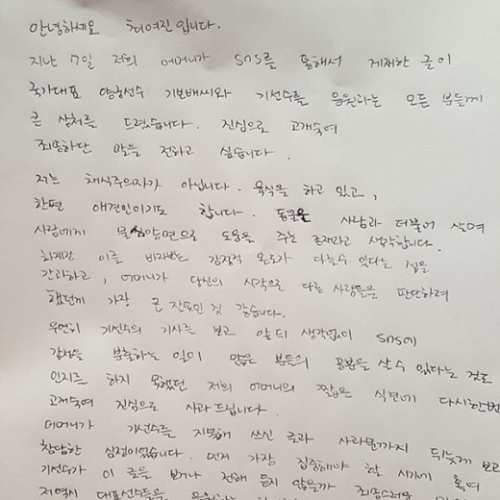 안녕하세요 최여진입니다.
지난 7일 저희 어머니가 SNS를 통해서 게재한 글이
국가대표 양궁선수 기보배씨와 기선수를 응원하는 모든 분들께
큰 상처를 드렸습니다. 진심으로 고개숙여
죄송하단 말을 전하고 싶습니다.
저는 채식주의자가 아닙니다. 육식을 하고 있고,
한편 애견인이기도 합니다. 동물은 사람과 더불어 살며
사람에게 물심양면으로 도움을 주는 존재라고 생각합니다.
하지만 이를 바라보는 감정적 온도가 다를수 있다는 점을
간과하고, 어머니가 당신의 시각으로 다른 사람들을 판단하려
했던게 가장 큰 잘못인 것 같습니다.
우연히 기선수의 기사를 보고 앞뒤 생각없이 SNS에
감정을 분출하는 일이 많은 분들의 공분을 살 수 있다는 것도
인지를 하지 못했던 저희 어머니의 짧은 식견에 다시한번
고개숙여 진심으로 사과드립니다.
어머니가 기선수를 지명해 쓰신 글과 사과문까지 뒤늦게 보고
참담한 심정이었습니다. 먼저 가장 집중해야 할 시기에 혹여
기선수가 이 글을 보거나 전해 듣지 않을까 죄송스러운
저역시 대표선수들을 응원하는